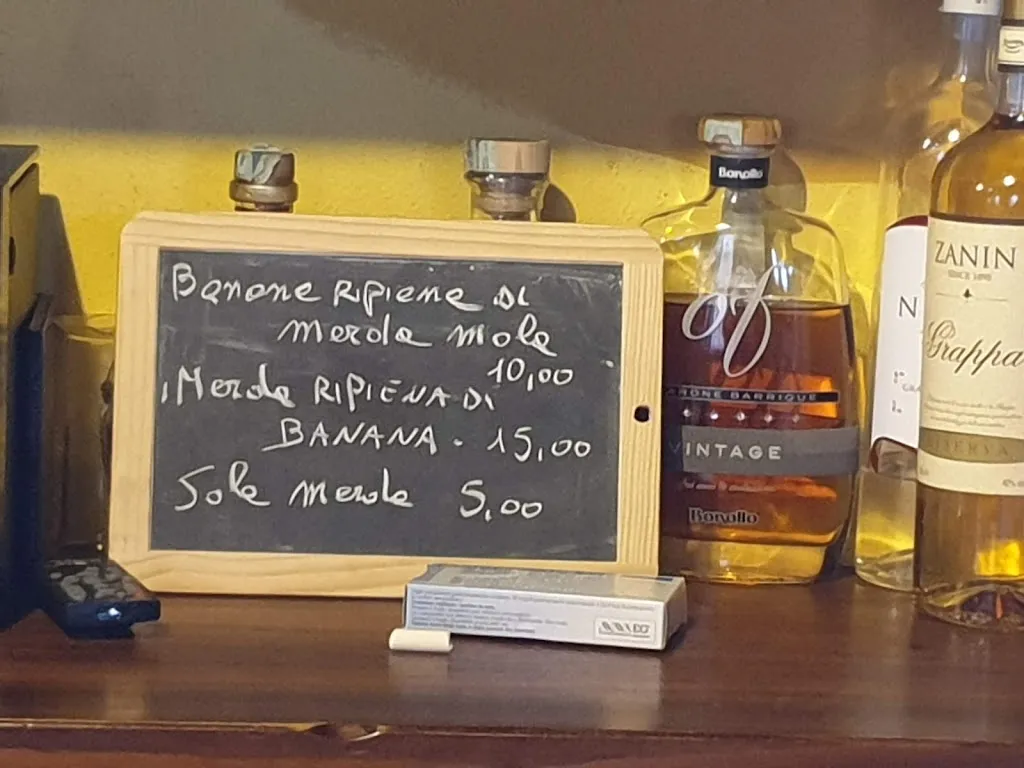 Banane RIPIENE DI
merda mole
10,00
Merda RIPIENA DI
BANANA - 15,00
Sole merda 5,00
Bonollo
of
BARRIQUE
VINTAGE
Bonollo
N
ZANIN
SINCE 1895
Grappa
RISERVA